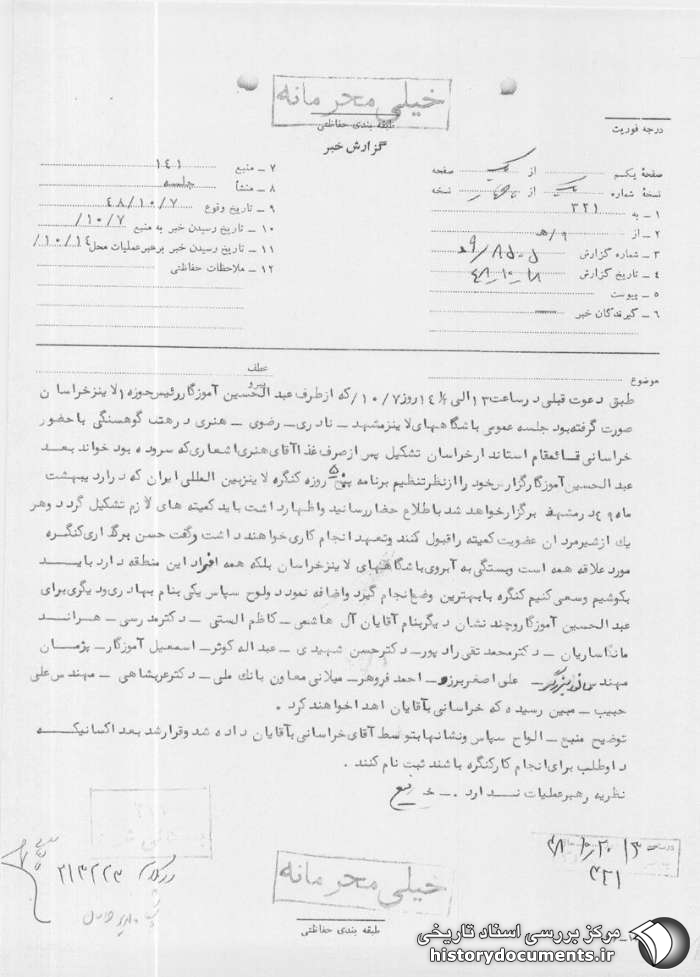 خیلی محرمانه
طبقه بندی حفاظتی
گزارش خبر
درجه فوریت
صفحهٔ یکم از یک صفحه
نسخهٔ شماره یک از نسخه
۱ – به ۳۲۱
۲ – از ۹/هـ
۳ – شماره گزارش
۴ – تاریخ گزارش ۴۸/۱۰/۱۸
۵ – پیوست
۶ – گیرندگان خبر
۷ – منبع ۱۴۱
۸ – منشأ جلسه
۹ – تاریخ وقوع ۴۸/۱۰/۷
۱۰ – تاریخ رسیدن خبر به منبع ۱۰/۷/
۱۱ – تاریخ رسیدن خبر برهبر عملیات محل ۱۰/۱۴/
۱۲ – ملاحظات حفاظتی
موضوع
عطف
پیرو
طبق دعوت قبلی در ساعت ۱۳ الی ۱۴½ روز ۱۰/۷/ که از طرف عبدالحسین آموزگار رئیس حوزه ۱ لاینز خراسان
صورت گرفته بود جلسه عمومی باشگاههای لاینز مشهد – نادری – رضوی – هنری در هتل گوهسنگی با حضور
خراسانی قائمقام استاندار خراسان تشکیل پس از صرف غذا آقای هنری اشعاری که سروده بود خواند بعد
عبدالحسین آموزگار گزارش خود را از نظر تنظیم برنامه پنج ۵ روزه کنگره لاینز بین المللی ایران که در اردیبهشت
ماه ۴۹ در مشهد برگزار خواهد شد باطلاع حضار رسانید و اظهار داشت باید کمیته های لازم تشکیل گردد و هر
یک از شیرمردان عضویت کمیته را قبول کنند و تعهد انجام کاری خواهند داشت و گفت حسن برگذاری کنگره
مورد علاقه همه است و بستگی به آبروی باشگاههای لاینز خراسان بلکه همه افراد این منطقه دارد باید
بکوشیم و سعی کنیم کنگره با بهترین وضع انجام گیرد و اضافه نمود دو لوح سپاس یکی بنام بهادری و دیگری برای
عبدالحسین آموزگار و چند نشان دیگر بنام آقایان آل هاشمی – کاظم الستی – دکتر مدرسی – هراند
مانداساریان – دکتر محمد تقی راد پور – دکتر حسن شهیدی – عبداله کوثر – اسمعیل آموزگار – پژمان
مهندس – علی اصغر برزو – احمد فروهر – میلانی معاون بانک ملی – دکتر عربشاهی – مهندس علی
حبیب – مبین رسیده که خراسانی بآقایان اهدا خواهند کرد .
توضیح منبع – الواح سپاس و نشانها بتوسط آقای خراسانی بآقایان داده شد و قرار شد بعداً کسانیکه
داوطلب برای انجام کار کنگره باشند ثبت نام کنند .
نظریه رهبر عملیات ندارد . –
در ساعت ۱۳
۴۸/۱۰/۲۰
۳۲۱
۲۱۳۲۲۳
خیلی محرمانه
طبقه بندی حفاظتی
مرکز بررسی اسناد تاریخی
historydocuments.ir